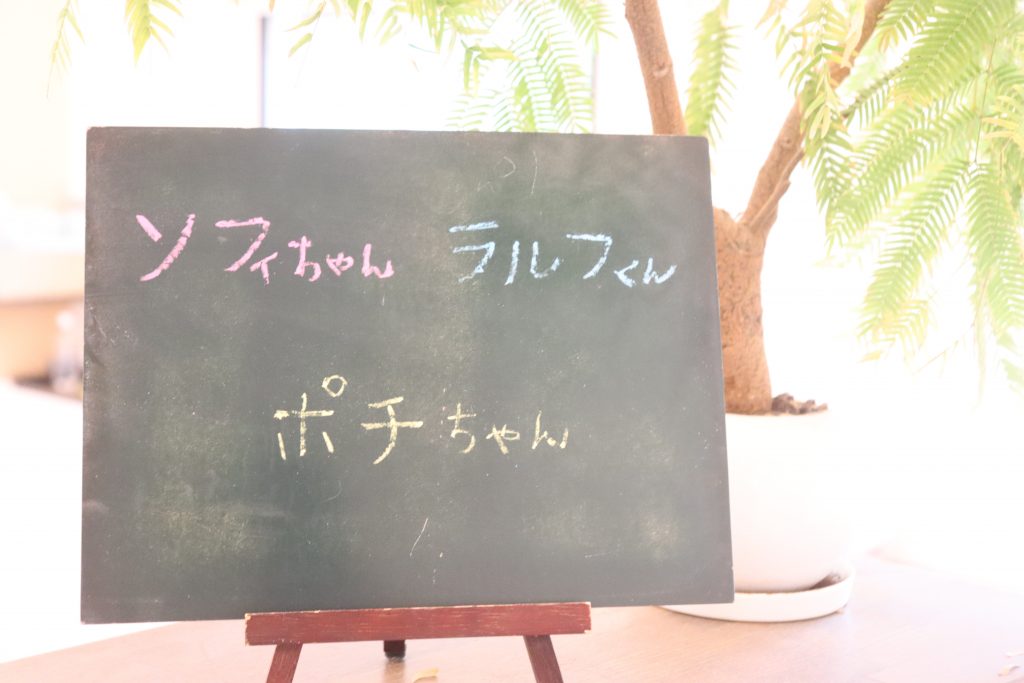 ソフィちゃん ラルフくん
ポチちゃん